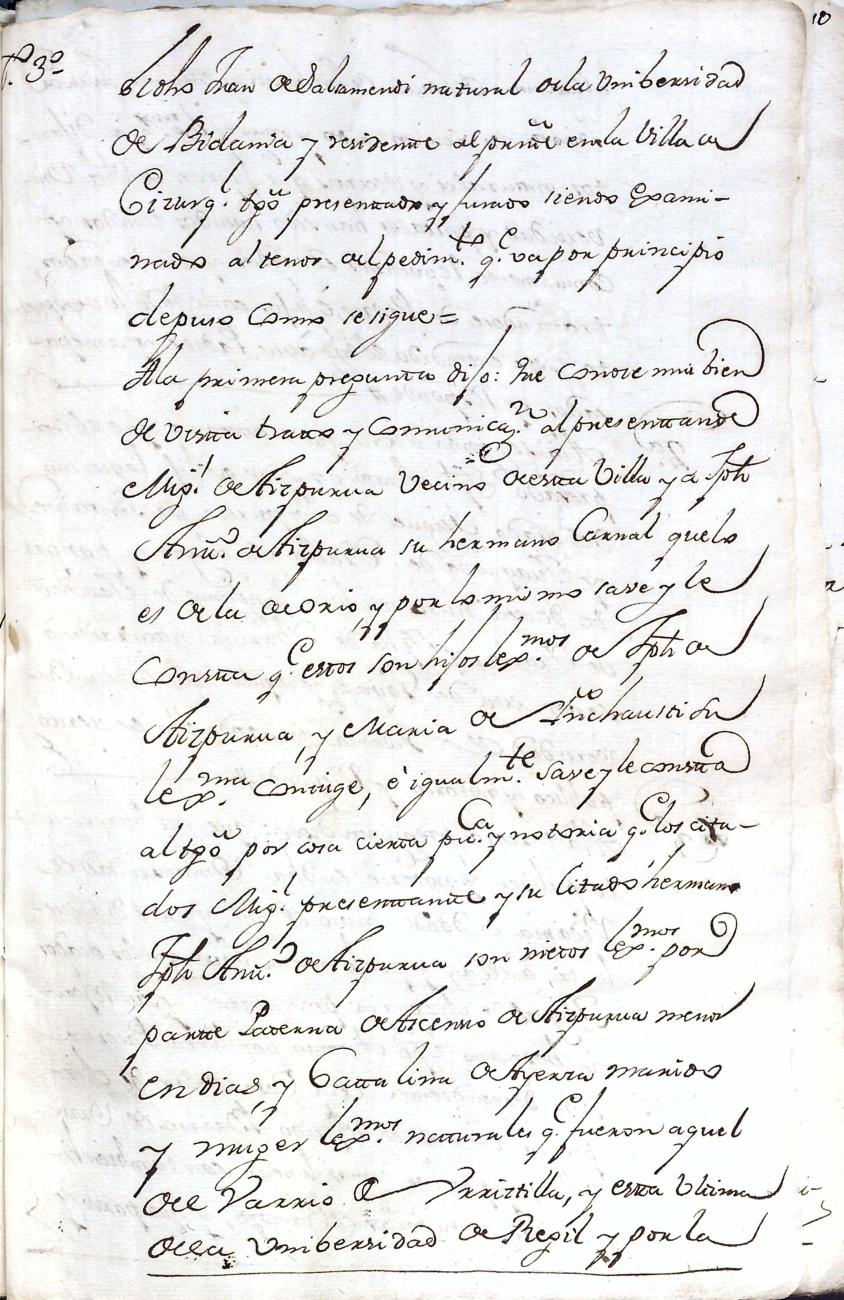 10
T.º 3º
Dicho Juan de Salamendi natural de la Unibersidad
de Bidania y residente al presᵗᵉ en la Villa de
Cizurqˡ tgõ presenttado y jurado siendo Exami-
nado al tenor del pedimᵗᵒ qᵉ va por principio
depuso Como se sigue=
A la primera pregunta dijo: que conoce mui bien
de vistta tratto y Comunicazⁿ al presenttante
Migˡ de Aizpurua Vecino de estta Villa y a Jph
Anttº de Aizpurua su hermano Carnal que lo
es de la de Orio, y por lo mismo save y le
Constta qᵉ estos son hijos lexᵐᵒˢ de Jph de
Aizpurua, y Maria de Ynchausti su
lexᵐᵃ Coniuge, e igualmᵗᵉ save y le constta
al tgõ por cosa cierta puᶜᵃ y notoria qᵉ los cita-
dos Migˡ presenttante y su Citado hermano
Jph Anttº de Aizpurua son nietos lexᵐᵒˢ por
partte Paterna de Ascensio de Aizpurua menor
en dias, y Catta lina de Ayerza marido
y muger lexᵐᵒˢ natturales qᵉ fueron aquel
del Varrio de Urriztilla, y estta Ultima
de la Unibersidad de Regil y por la